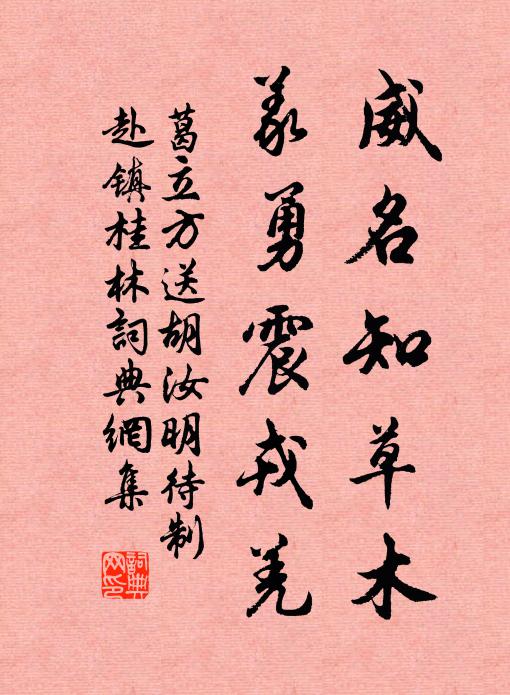 威名知草木
義勇震戎羌
葛立方送胡汝明待制
赴镇桂林詞典網集
詞典網印